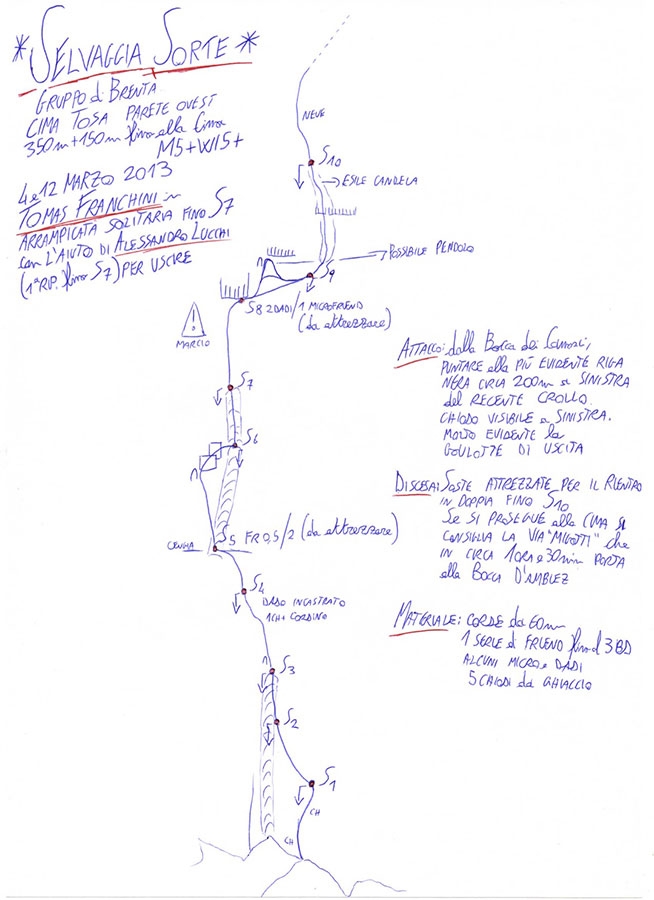 *SELVAGGIA SORTE*
GRUPPO di BRENTA
CIMA TOSA PARETE OVEST
350m+150m fino alla Cima
M5+WI5+
4 e 12 MARZO 2013
TOMAS FRANCHINI in
ARRAMPICATA SOLITARIA FINO S7
con L'AIUTO DI ALESSANDRO LUCCHI
(1ªRIP. fino S7) PER USCIRE
NEVE
S10
ESILE CANDELA
POSSIBILE PENDOLO
S9
S8 2DADI/1 MICROFRIEND
(da attrezzare)
!
MARCIO
S7
S6
CENGIA
S5 FR 0,5/2 (da attrezzare)
S4
DADO INCASTRATO
1CH+ CORDINO
S3
S2
S1
CH
CH
ATTACCO: dalla Bocca dei Camosci,
PUNTARE alla PIÙ EVIDENTE RIGA
NERA CIRCA 200m a SINISTRA
del RECENTE CROLLO.
CHIODO VISIBILE a SINISTRA.
MOLTO EVIDENTE la
GOULOTTE DI USCITA
DISCESA: SOSTE ATTREZZATE PER IL RIENTRO
IN DOPPIA FINO S10
SE SI PROSEGUE alla CIMA SI
CONSIGLIA LA VIA "MIGOTTI" che
IN CIRCA 1ORA e 30min PORTA
alla BOCCA D'AMBIEZ
MATERIALE: CORDE da 60m
1 SERIE di FRIEND fino al 3BD
ALCUNI MICRO e DADI
5 CHIODI da GHIACCIO